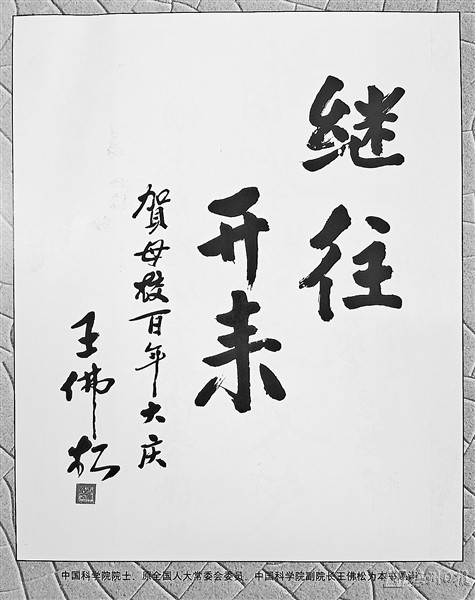 继往
开来
贺母校百年大庆
王佛松
中国科学院院士、原全国人大常委会委员、中国科学院副院长王佛松为本书题词